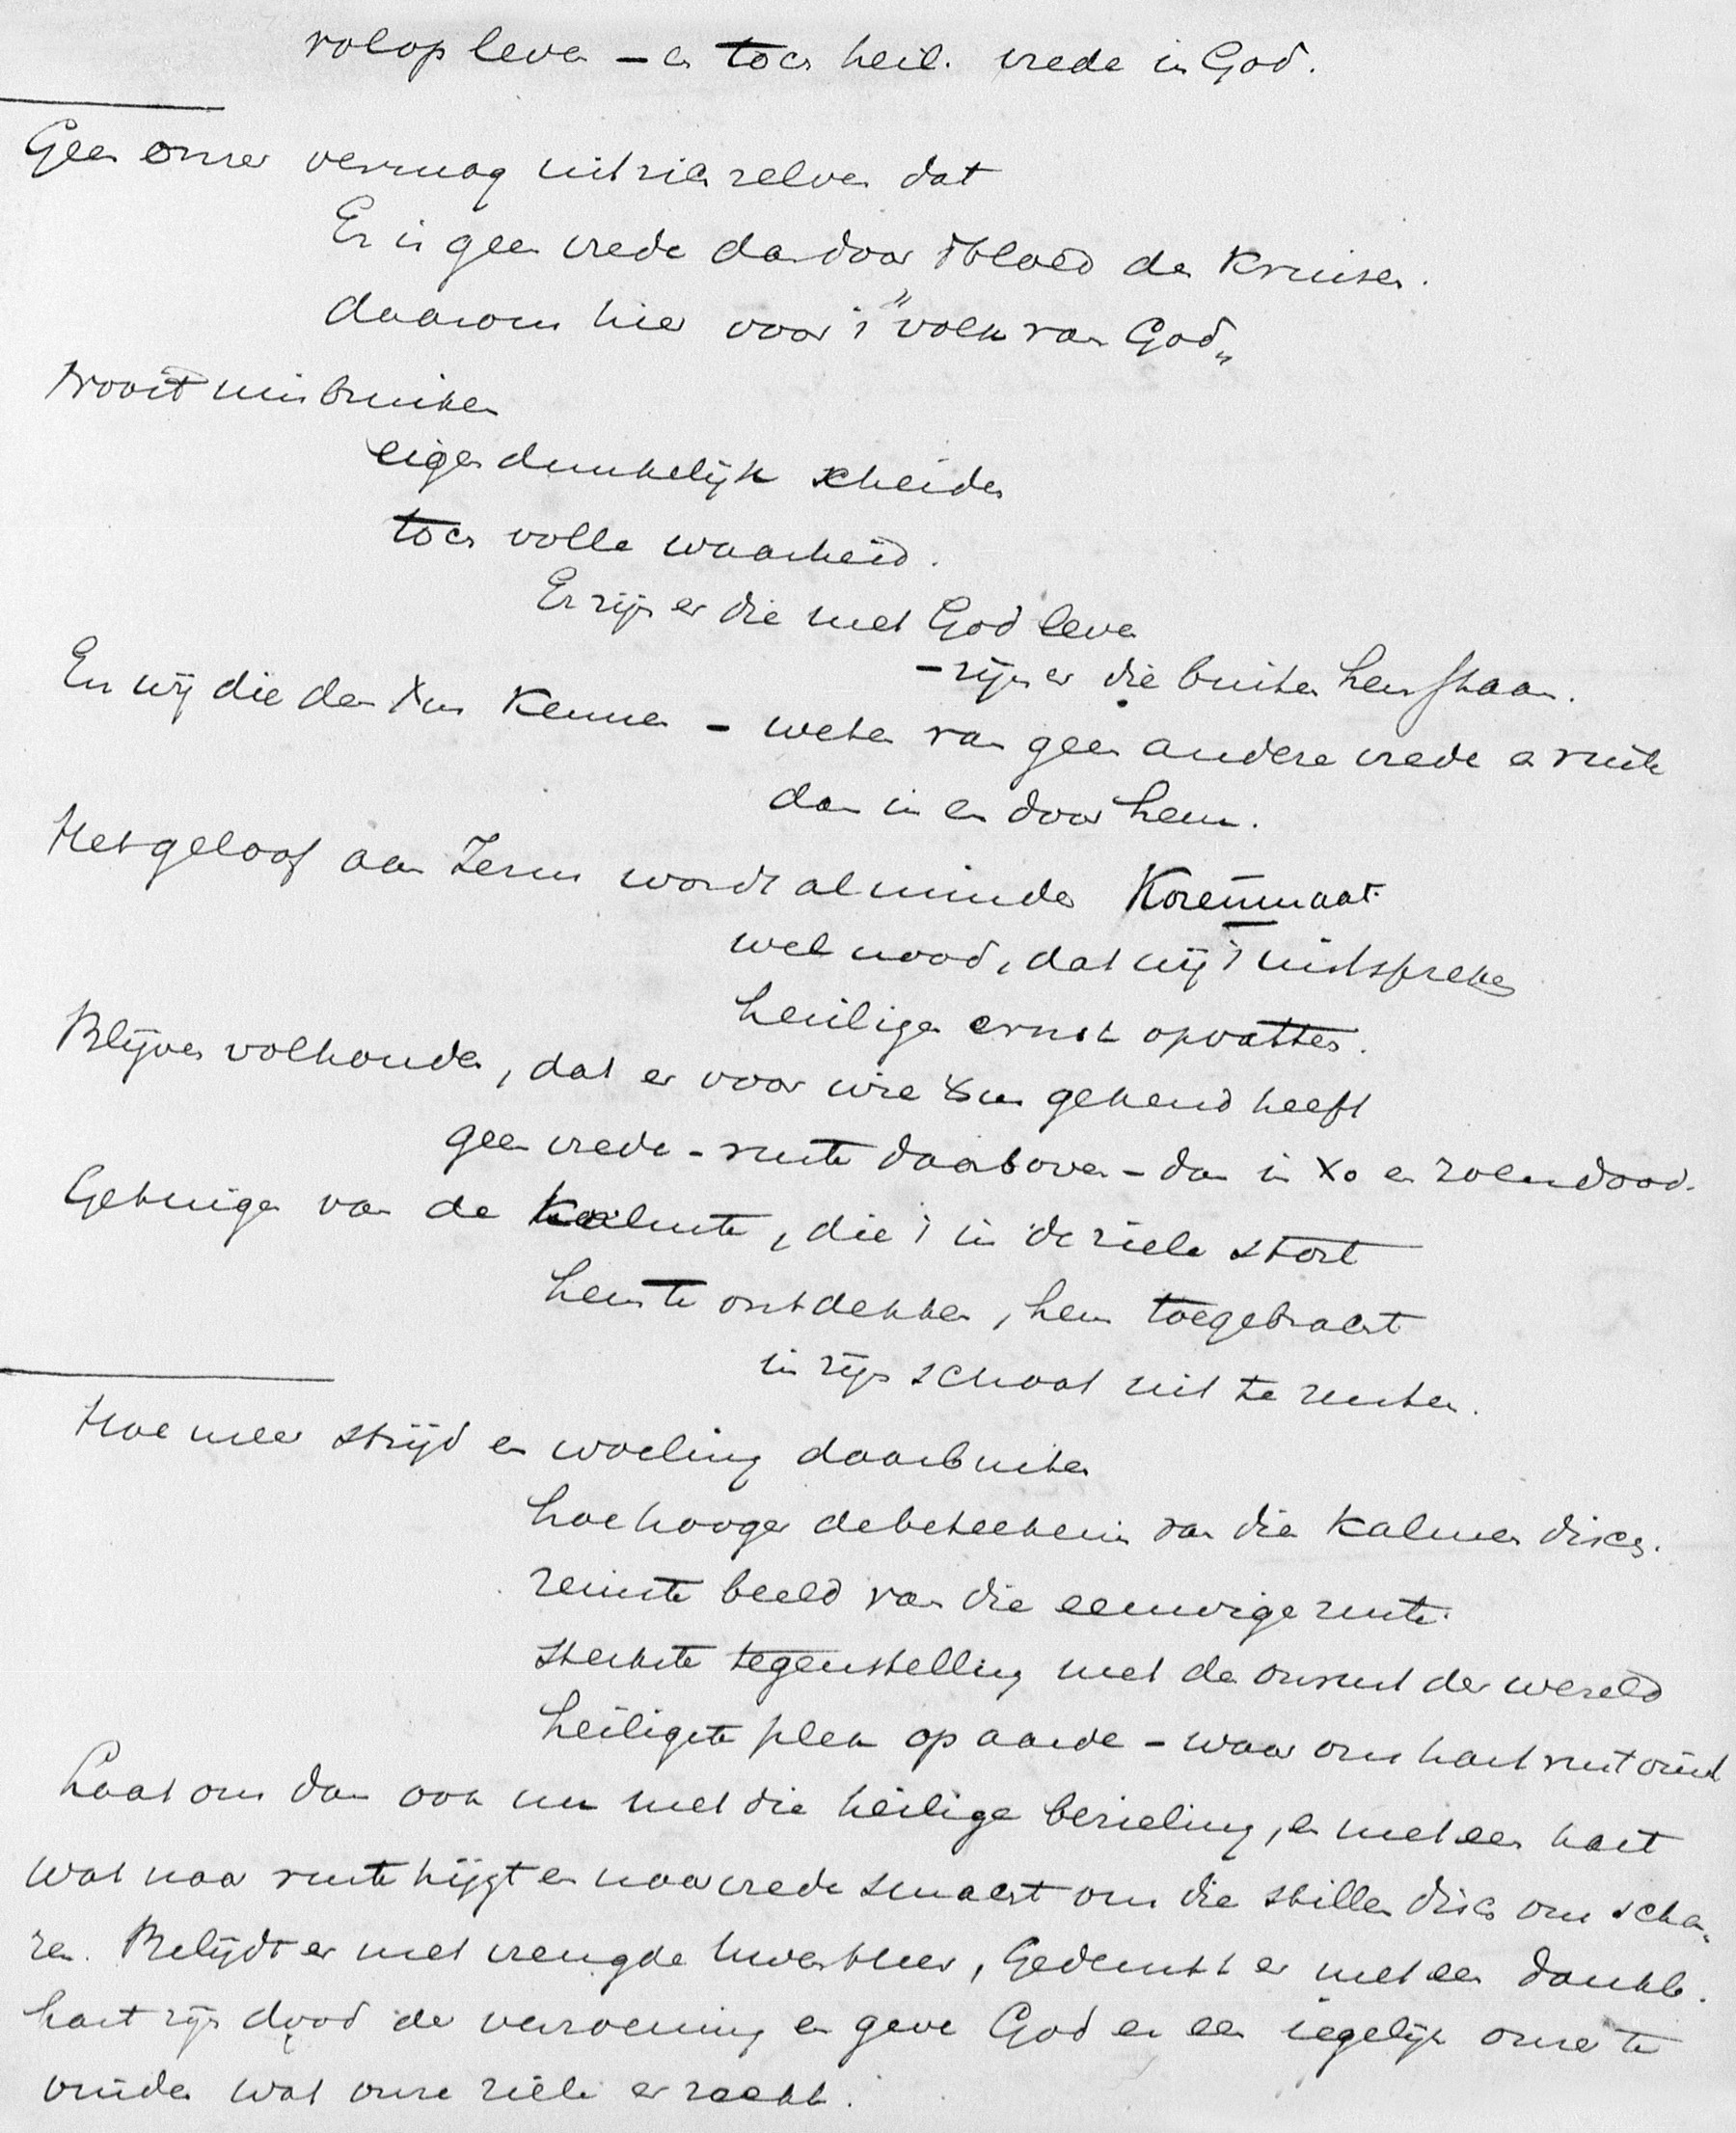 volop leven – en toch heil. vrede in God.
Geen onzer vermag uit zich zelven dat
Er is geen vrede dan door 't bloed des Kruises.
daarom hier voor 't "volk van God"
Nooit misbruiken
eigendunkelijk scheiden
toch volle waarheid.
Er zijn er die met God leven
– zijn er die buiten hem staan.
En wij die den Xus Kennen – weten van geen andere vrede en ruste
dan in en door hem.
Het geloof aan Jezus wordt al minder Korenmaat.
wel nood, dat wij 't uitspreken
heiligen ernst opvatten.
Blijven volhouden, dat er voor wie Xus gekend heeft
geen vrede – ruste daarboven – dan in Xo en zoendood.
Getuigen van de Kalmte, die 't in de ziele stort
hem te ontdekken, hem toegebracht
in zijn schoot uit te rusten.
Hoe meer strijd en woeling daarbuiten
hoe hooger de beteekenis van dien Kalmen disch.
reinste beeld van die eeuwige ruste.
sterkste tegenstelling met de onrust der wereld
heiligste plek op aarde – waar ons hart rust vindt
Laat ons dan ook nu met die heilige bezieling, en met een hart
wat naar ruste hijgt en naar vrede smacht om die stillen disch ons scha-
ren. Belijdt er met vreugde Uwen Heer, Gedenkt er met een dankb.
hart zijn dood der verzoening en geve God er een iegelijk onzer te
vinden wat onze ziele er zoekt.